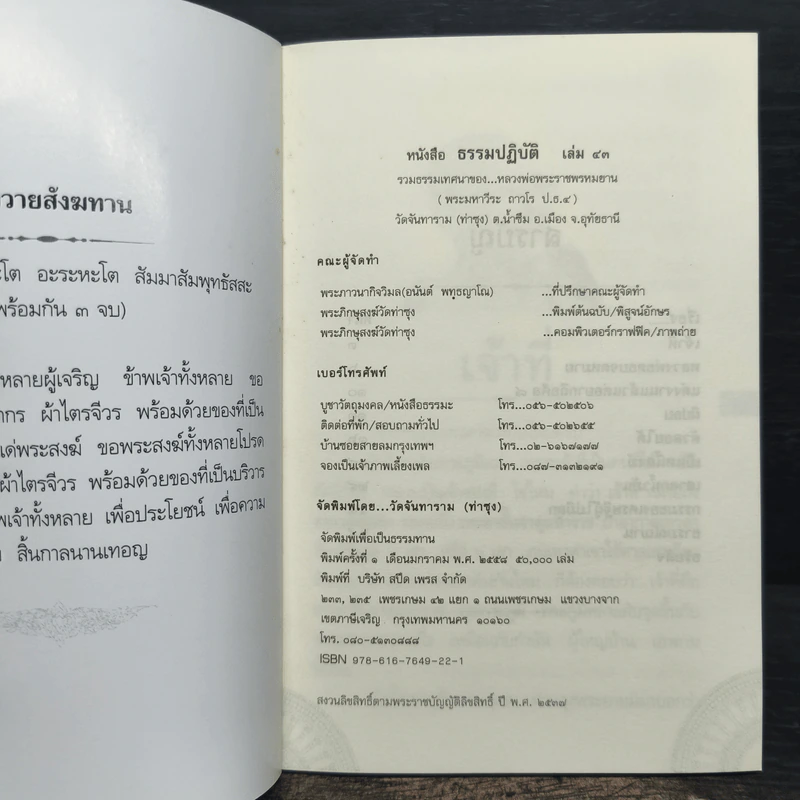 วายสังฆทาน
อะระหะโต สัมมาสัมพุทธัสสะ
พร้อมกัน ๓ จบ)
หลายผู้เจริญ ข้าพเจ้าทั้งหลาย ขอ
ผ้าไตรจีวร พร้อมด้วยของที่เป็น
พระสงฆ์ ขอพระสงฆ์ทั้งหลายโปรด
ผ้าไตรจีวร พร้อมด้วยของที่เป็นบริวาร
เจ้าทั้งหลาย เพื่อประโยชน์ เพื่อความ
สิ้นกาลนานเทอญ
หนังสือ ธรรมปฏิบัติ เล่ม ๔๓
รวมธรรมเทศนาของ...หลวงพ่อพระราชพรหมยาน
(พระมหาวีระ ถาวโร ป.ธ.๔)
วัดจันทาราม (ท่าซุง) ต.น้ำซึม อ.เมือง จ.อุทัยธานี
คณะผู้จัดทำ
พระภาวนากิจวิมล(อนันต์ พทฺธญาโณ) ...ที่ปรึกษาคณะผู้จัดทำ
พระภิกษุสงฆ์วัดท่าซุง ...พิมพ์ต้นฉบับ/พิสูจน์อักษร
พระภิกษุสงฆ์วัดท่าซุง ...คอมพิวเตอร์กราฟฟิค/ภาพถ่าย
เบอร์โทรศัพท์
บูชาวัตถุมงคล/หนังสือธรรมะ โทร...๐๕๖-๕๐๒๕๐๖
ติดต่อที่พัก/สอบถามทั่วไป โทร...๐๕๖-๕๐๒๖๕๕
บ้านซอยสายลมกรุงเทพฯ โทร...๐๒-๖๑๖๗๑๗๗
จองเป็นเจ้าภาพเลี้ยงเพล โทร...๐๘๗-๓๑๓๒๑๙๑
จัดพิมพ์โดย...วัดจันทาราม (ท่าซุง)
จัดพิมพ์เพื่อเป็นธรรมทาน
พิมพ์ครั้งที่ ๑ เดือนมกราคม พ.ศ. ๒๕๕๘ ๕๐,๐๐๐ เล่ม
พิมพ์ที่ บริษัท สปีด เพรส จำกัด
๒๓๓, ๒๓๕ เพชรเกษม ๔๒ แยก ๑ ถนนเพชรเกษม แขวงบางจาก
เขตภาษีเจริญ กรุงเทพมหานคร ๑๐๑๖๐
โทร. ๐๘๐-๕๑๓๐๘๘๘
ISBN 978-616-7649-22-1
สงวนลิขสิทธิ์ตามพระราชบัญญัติลิขสิทธิ์ ปี พ.ศ. ๒๕๓๗